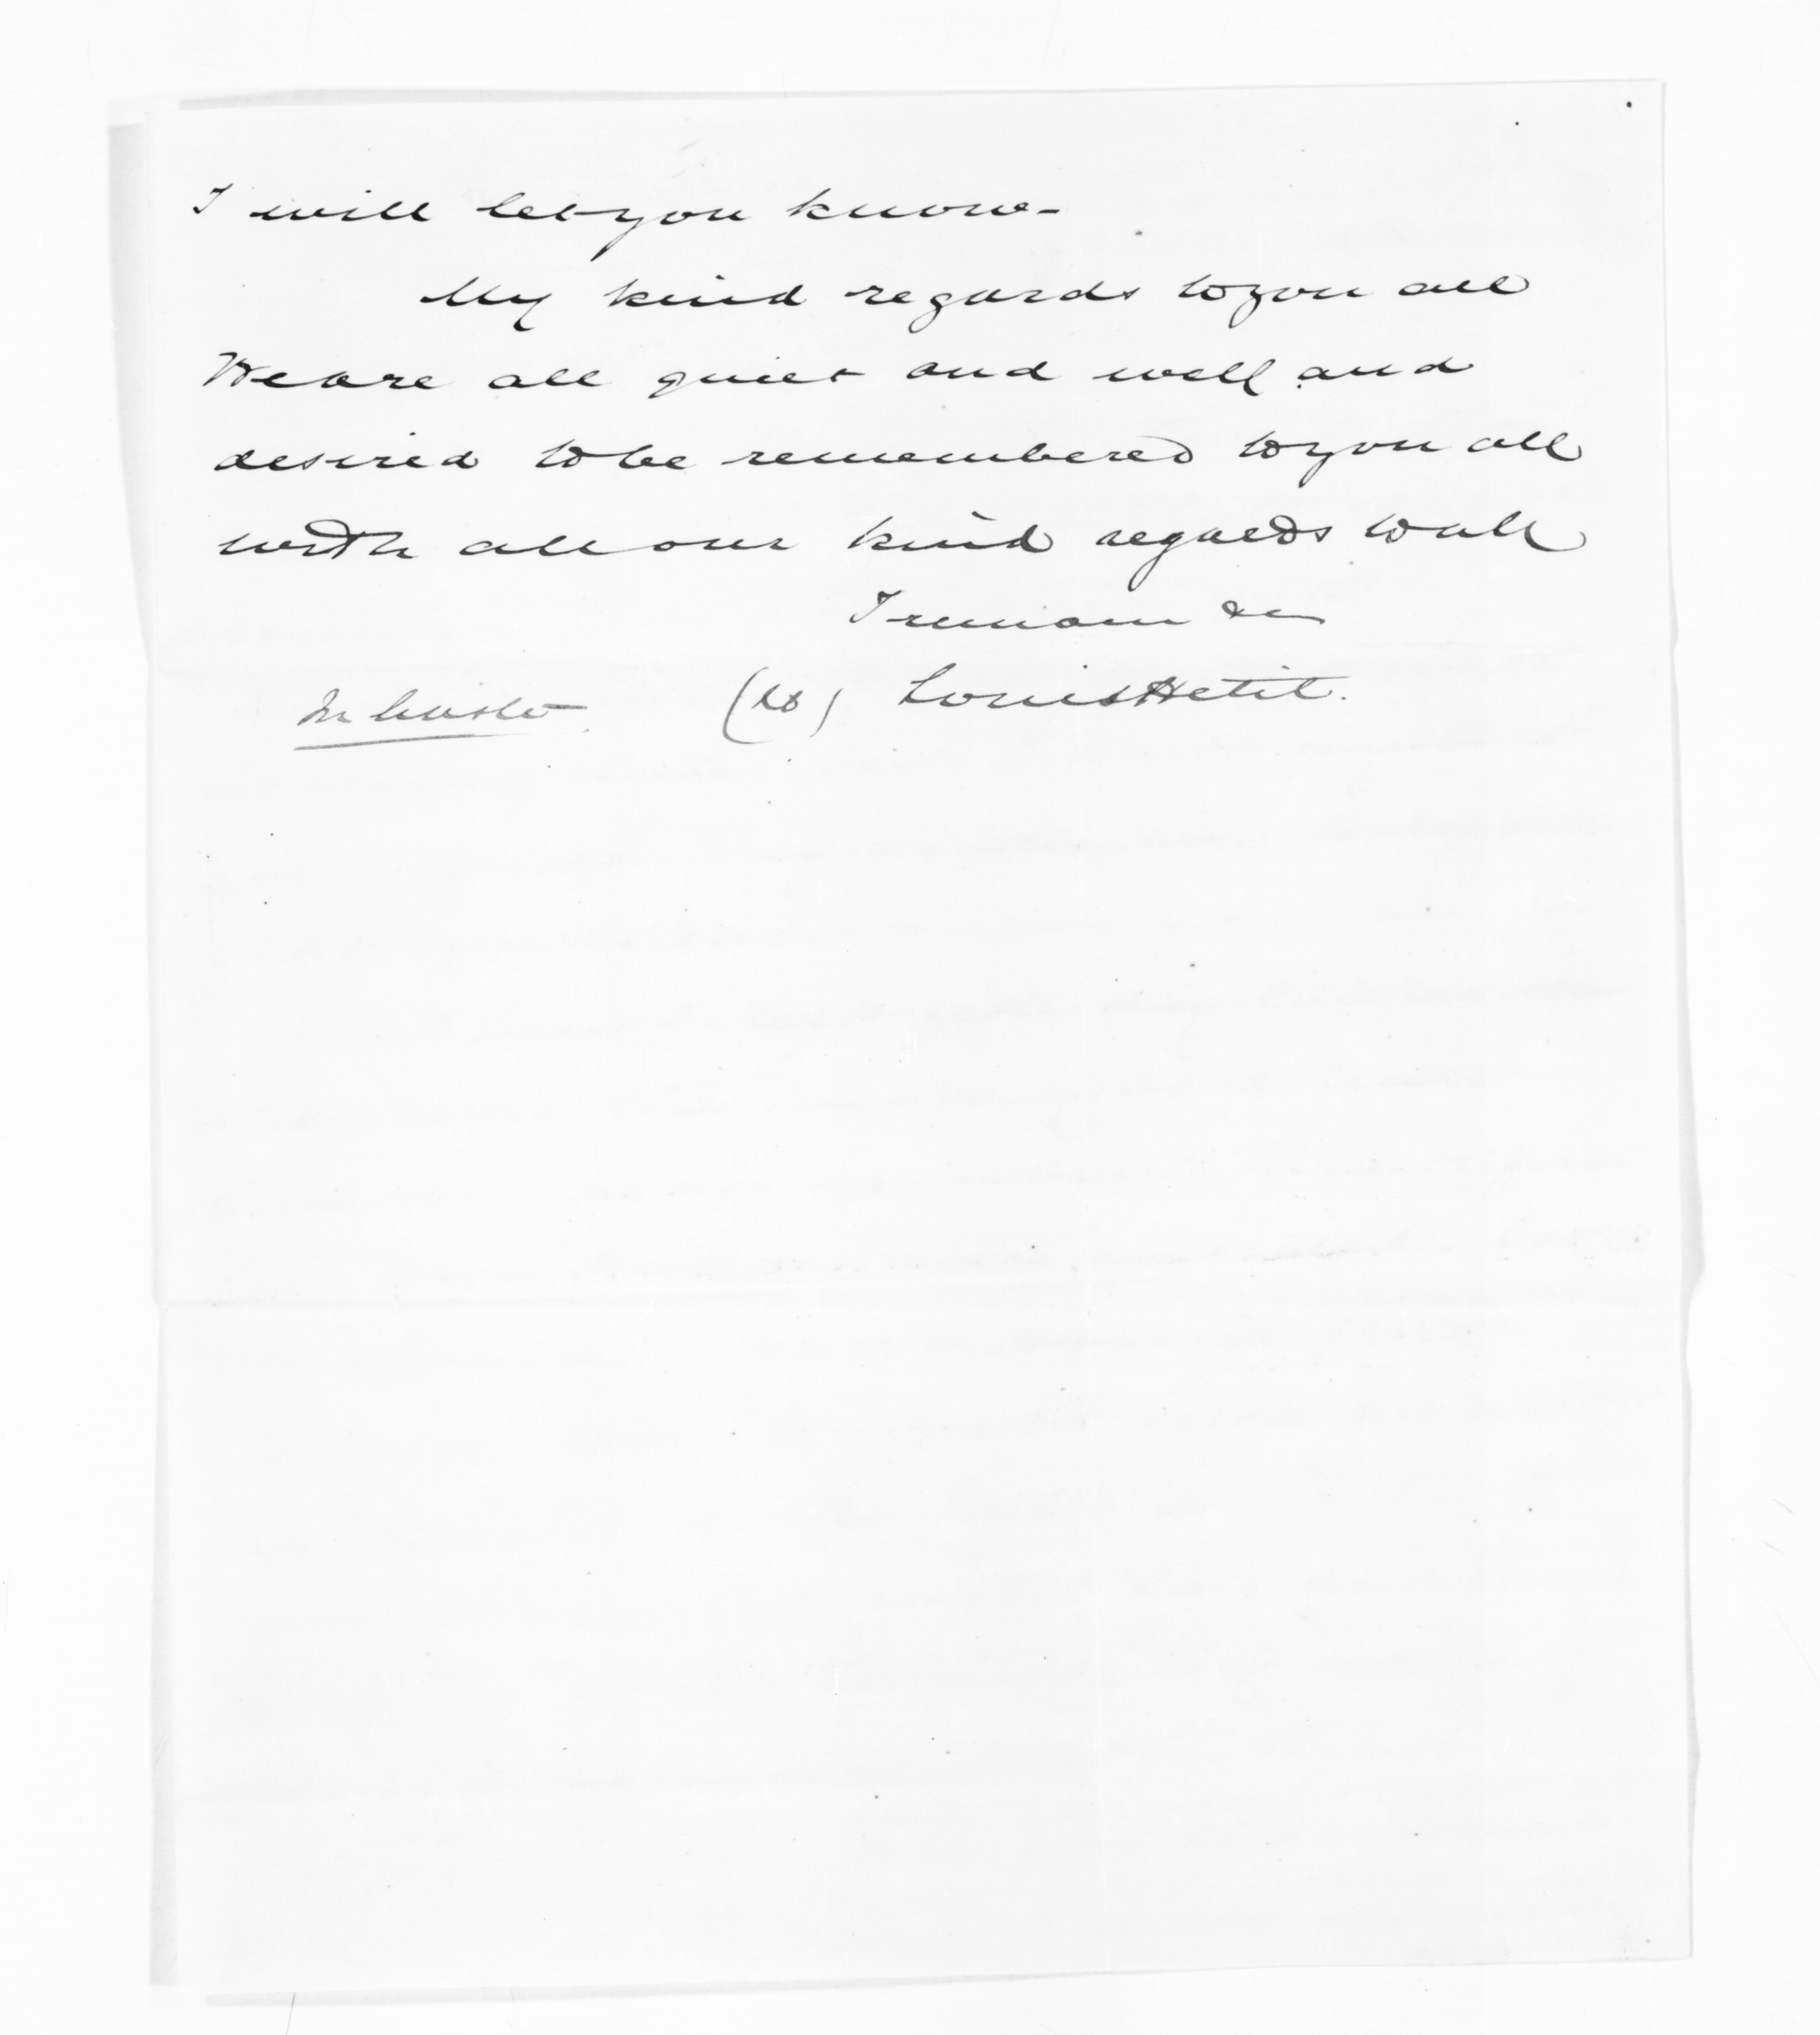 I will let you know -
My kind regards to you all
We are all quiet and well and
desired to be remembered to you all
with all our kind regards to all
I remain &c
Louis Hetit.